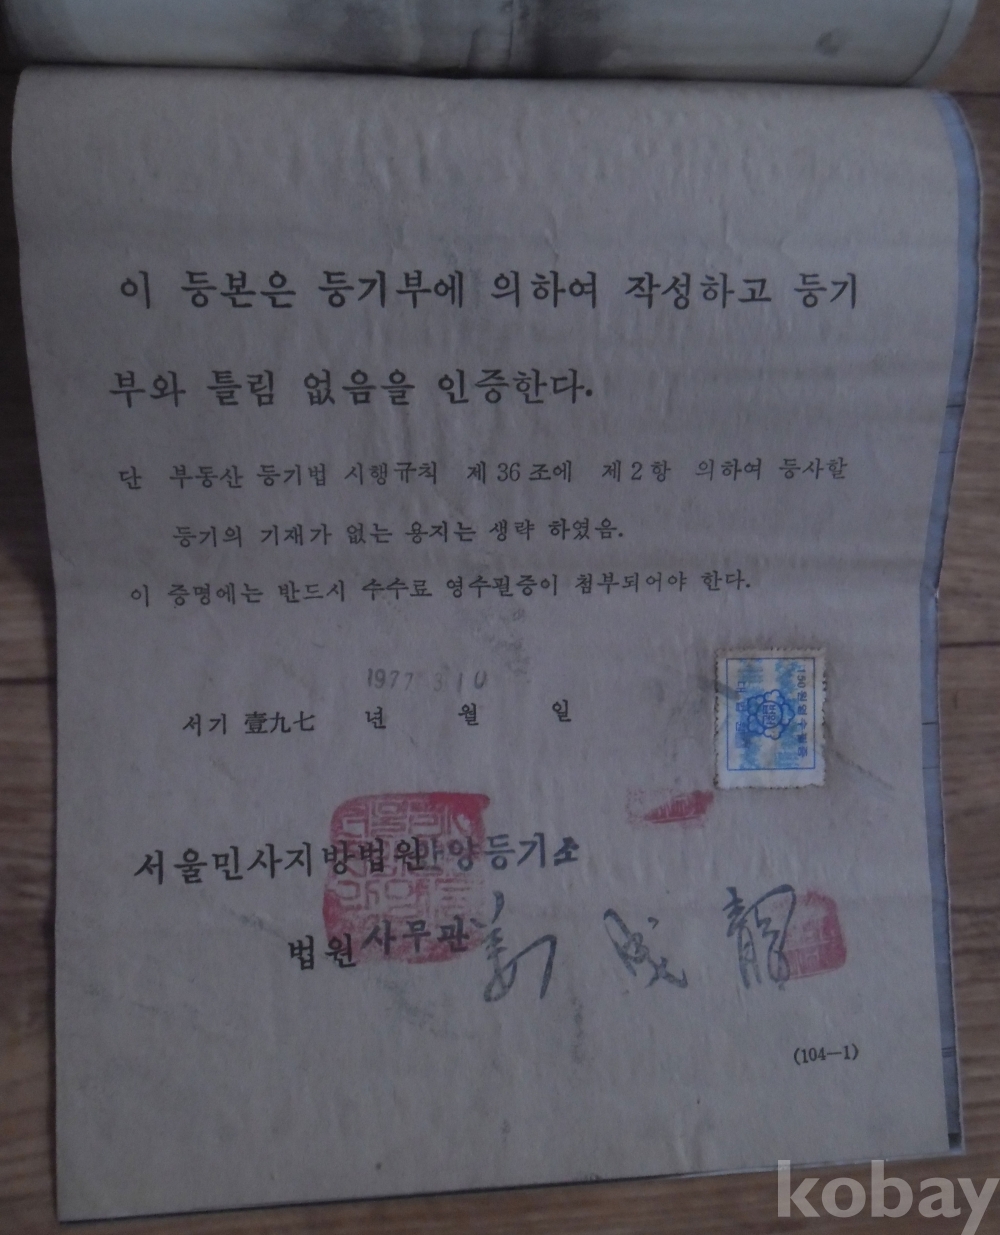 이 등본은 등기부에 의하여 작성하고 등기
부와 틀림 없음을 인증한다.
단 부동산 등기법 시행규칙 제36조에 제2항 의하여 등사할
등기의 기재가 없는 용지는 생략 하였음.
이 증명에는 반드시 수수료 영수필증이 첨부되어야 한다.
1977 3 10
서기 壹九七 년 월 일
150원영수필증
대법원
서울민사지방법원안양등기소
법원사무관 成龍
(104—1)
kobay